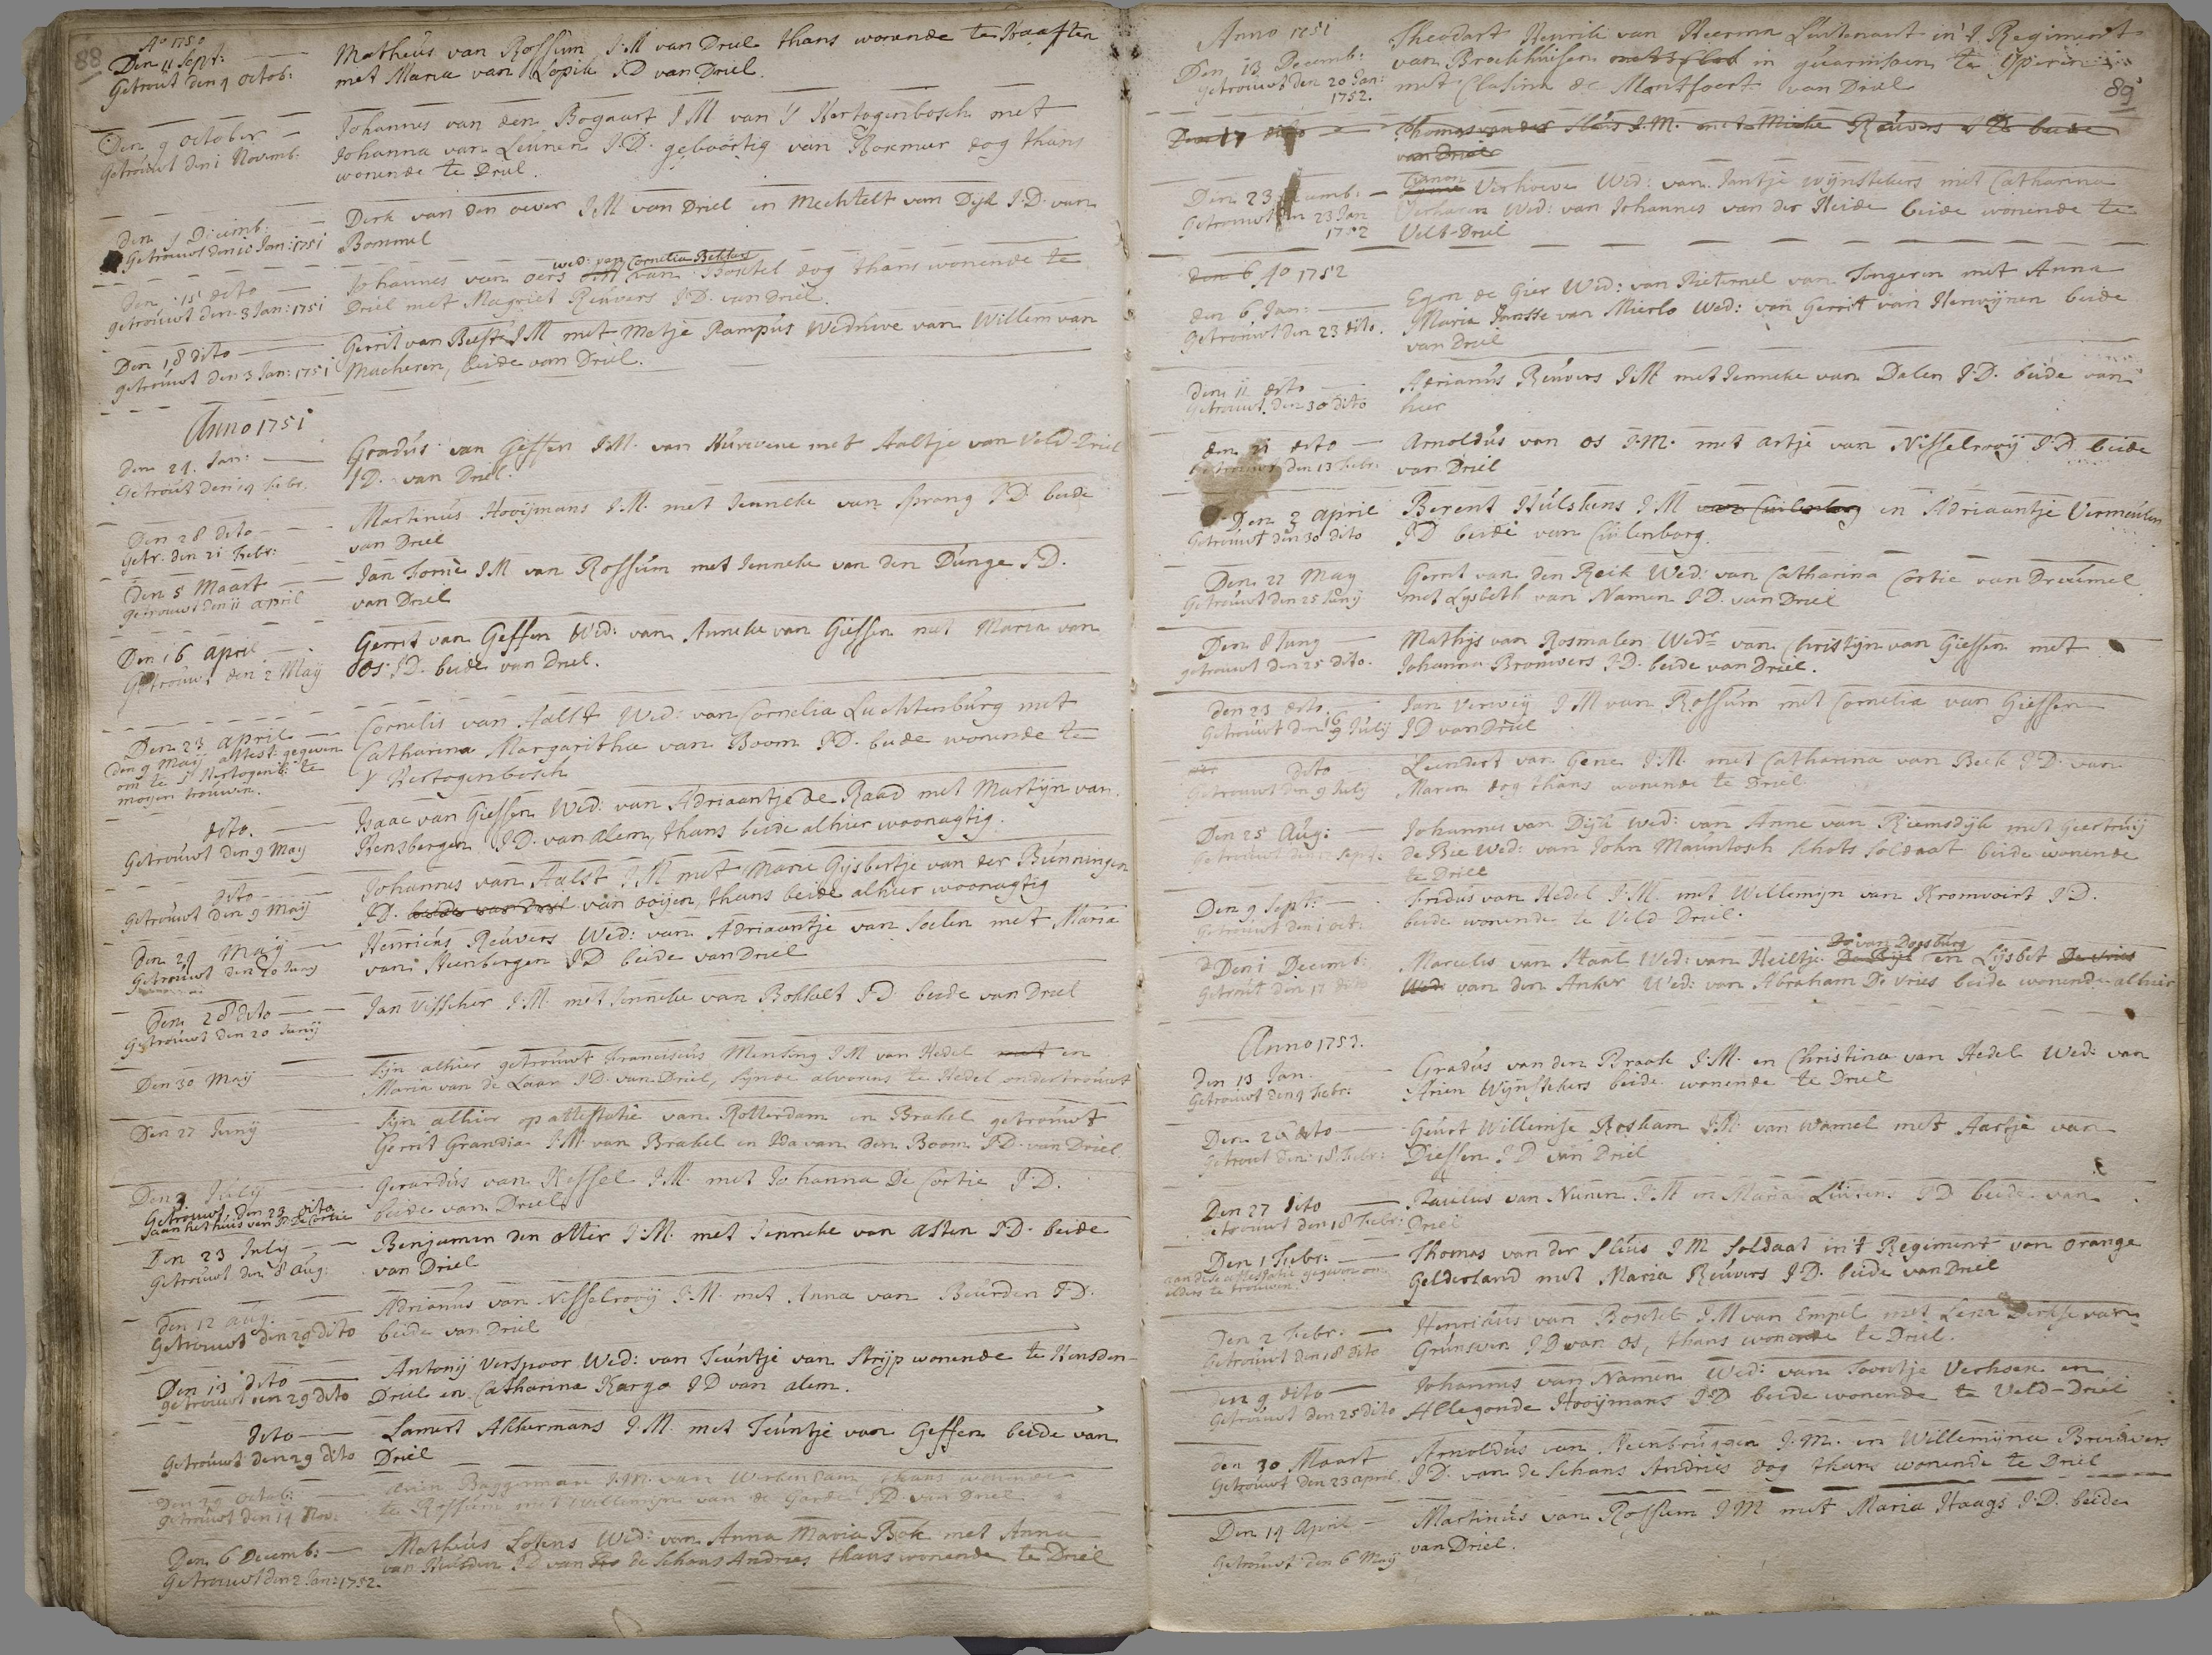 88
Ao 1750
Den 11 Sept:
Getrout den 4 octob:
Matheus van Rossum J.M van Driel thans wonende te Haaften
met Maria van Lopik J D van Driel.
Den 9 october
Getrouwt den 1 Novemb:
Johannes van den Bogaart J M van 's Hertogenbosch met
Johanna van Leunen J.D. geboortig van dog thans
wonende te Driel.
den 5 Decemb:
Getrouwt den 10 Jan: 1751
Derk van den oever J.M van Driel en Mechtelt van Dijk J.D. van
Bommel
den 15 dito
getrouwt den 3 Jan: 1751
wed: van Cornelia Bekkers
Johannes van oers van Boxtel dog thans wonende te
Driel met Magriet Reuvers J.D. van Driel.
Den 18 dito
getrouwt den 3 Jan: 1751
Gerrit van Beest J.M met Metje Rampus Weduwe van Willem van
Macheren, beide van Driel.
Anno 1751
den 21. Jan:
Getrout den 14 Febr.
Gradus van Geffen J.M. van Hurwene met Aaltje van Veld-Driel
J D. van Driel.
Den 28 dito
Getr. den 21 Febr:
Martinus Hooijmans J.M. met Jenneke van Sprang J.D. beide
van Driel
Den 5 Maart
Getrouwt den 11 april
Jan Forné J M van Rossum met Jenneke van den Dunge J D.
van Driel
Den 16 april
Getrouwt den 2 Maij
Gerrit van Geffen Wed: van Anneke van Giessen met Maria van
Os J D. beide van Driel.
Den 23 april
den 9 Maij attest: gegeven
om te 's Hertogenb: te
mogen trouwen.
Cornelis van Aalst Wed: van Cornelia Luchtenburg met
Catharina Margaritha van Boom J D. beide wonende te
's Hertogenbosch
dito.
Getrouwt den 9 Maij
Isaac van Giessen Wed: van Adriaantje de Raad met Martijn van
Rensbergen J.D. van alem, thans beide alhier woonagtig.
dito
Getrouwt den 9 Maij
Johannes van Aalst J M met Marie Gijsbertje van der Bunningen
J D. beide van Driel van ooijen, thans beide alhier woonagtig
den 29 Maij
Getrouwt den 20 Junij
Henricus Reuvers Wed: van Adriaantje van Soelen met Maria
van Heenbergen J D beide van Driel
Den 28 dito
Getrouwt den 20 Junij
Jan Visscher J.M. met Jenneke van Bokholt J D. beide van Driel
Den 30 Maij
Sijn alhier getrouwt Franciscus Mensing J M van Hedel met en
Maria van de Laar J D. van Driel, sijnde alvorens te Hedel ondertrouwt
Den 27 Junij
Sijn alhier op attestatie van Rotterdam en Brakel getrouwt
Gerrit Grandia J.M. van Brakel en Ida van den Boom J D. van Driel
Den 3 Julij
Getrouwt den 23 dito
aan het huis van Jr De Cortie
Gerardus van Kessel J.M. met Johanna De Cortie J.D.
beide van Driel
Den 23 Julij
Getrouwt den 8 aug:
Benjamin den otter J.M. met Jenneke van Asten J.D. beide
van Driel
Den 12 aug.
Getrouwt den 29 dito
Adrianus van Nisselrooij J.M. met Anna van Beurden J.D.
beide van Driel
Den 13 dito
getrouwt den 29 dito
Antonij Verspoor Wed: van Teuntje van Strijp wonende te Hensden-
Driel en Catharina Kargo J D van alem.
dito
Getrouwt den 29 dito
Lamert Akkermans J.M. met Teuntje van Geffen beide van
Driel
Den 29 Octob:
getrouwt den 14 Nov:
Arien Baggerman J.M. van Werkendam, thans wonende
te Rossum met Willemijn van de Garde J D van Driel
Den 6 Decemb:
Getrouwt den 2 Jan: 1752.
Matheus Lotens Wed: van Anna Maria Bok met Anna
van Heusden J D van de Schans Andries thans wonende te Driel
Anno 1751
Den 13 Decemb:
getrouwt den 20 Jan:
1752.
Theodart Henrik van Heerma Luitenant in 't Regiment
van Brockhuisen in guarnisoen te Yperen
met Clasina de Montfoort van Driel
89
Den 17 dito
Thomas van der Sluis J.M. met Mieke Reuvers J D. beide
van Driel
Den 23 Decemb:
Getrouwt den 23 Jan
1752
Verhoeve Wed: van Jantje Wijnstekers met Catharina
Verhoeven Wed: van Johannes van der Heide beide wonende te
Velt-Driel
den 6 Ao 1752
den 6 Jan:
Getrouwt den 23 dito.
Egon de Gier Wed: van Pieternel van Tongeren met Anna
Maria Jansse van Mierlo Wed: van Gerrit van Herwijnen beide
van Driel
den 11 dito
Getrouwt den 30 dito
Adrianus Reuvers J.M met Jenneke van Dalen J.D. beide van
hier
den 21 dito
Getrouwt den 13 Febr:
Arnoldus van Os J.M. met Artje van Nisselrooij J D. beide
van Driel
Den 2 april
Getrouwt den 30 dito
Berent Hulskens J M van Cuilenborg en Adriaantje Vermeulen
J D beide van Cuilenborg.
Den 27 May
Getrouwt den 25 Junij
Gerrit van den Reik Wed: van Catharina Cortie van Dreumel
met Lijsbeth van Namen J D. van Driel
Den 8 Juny
getrouwt den 25 dito.
Mathijs van Rosmalen Wedr van Christijn van Giessen met
Johanna Brouwers J D. beide van Driel.
Den 23 dito.
Getrouwt den 16 Julij
Jan Verweij J M van Rossum met Cornelia van Giessen
J D van Driel
dito
Getrouwt den 9 July
Leendert van Gene J.M. met Catharina van Beek J D. van
Maren dog thans wonende te Driel
Den 25 Aug:
Getrouwt den Sept.
Johannes van Dijk wed: van Anne van Riemsdijk met Geertruij
de Bie Wed: van John Mauntosch Schots soldaat beide wonende
te Driel
Den 9 Sept:
Getrouwt den 1 oct:
Fridus van Hedel J.M. met Willemijn van Kromvoirt J D.
beide wonende te Veld Driel.
Den 1 Decemb:
Getrout den 17 dito
van Doesburg
Marcelis van Haal Wed: van Heiltje De Bijl en Lijsbet De Vries
Wed: van den Anker Wed: van Abraham De Vries beide wonende alhier
Anno 1753.
Den 13 Jan.
Getrouwt den 4 Febr:
Gradus van den Braak J.M. en Christina van Hedel Wed: van
Arien Wijnstekers beide wonende te Driel
Den 26 dito
Getrout den 18 Febr:
Geurt Willemse Rosham J.M. van Wamel met Aartje van
Diessen J D van Driel
Den 27 dito
Getrouwt den 18 Febr:
Paulus van Nunen J.M en Maria Luitens J D beide van
Driel
Den 1 Febr:
aan dese attestatie gegeven om
elders te trouwen
Thomas van der Sluis J M Soldaat in 't Regiment van Orange
Gelderland met Maria Reuvers J D. beide van Driel
Den 2 Febr.
Getrouwt den 18 dito
Henricus van Boxtel J M van Empel met Lena Derkse van
Grunsven J D van Os, thans wonende te Driel.
Den 9 dito
Getrouwt den 25 dito
Johannes van Namen Wed: van Toontje Verhoen en
Allegonde Hooijmans J D beide wonende te Veld-Driel
den 30 Maart
Getrouwt den 23 april
Arnoldus van Neenbruggen J.M. en Willemijna Breuivers
J D. van de Schans Andries dog thans wonende te Driel
Den 14 April
Getrouwt den 6 Maij
Martinus van Rossum J M met Maria Haags J D. beide
van Driel.